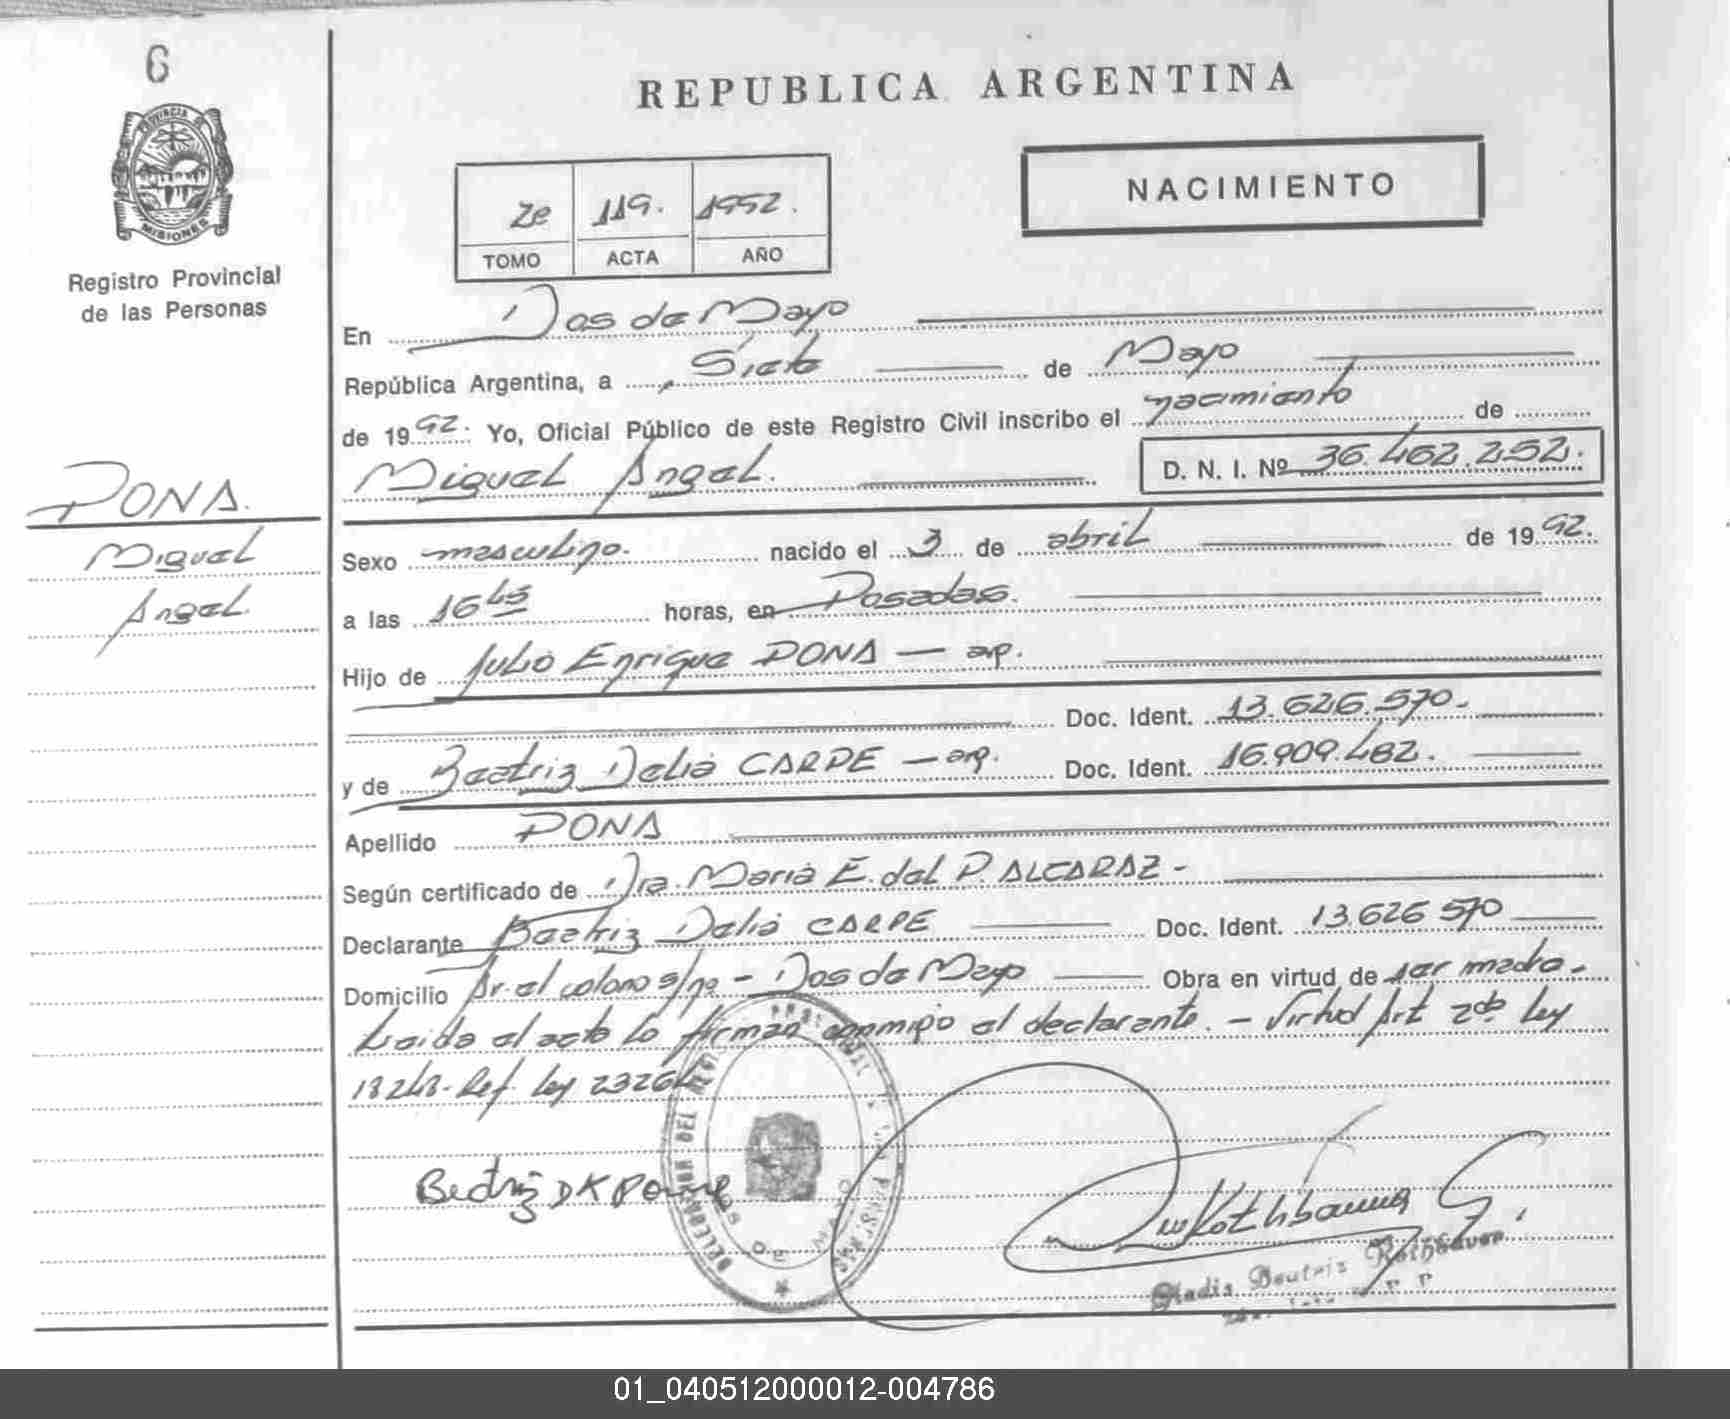 6
PROVINCIA DE
MISIONES
Registro Provincial
de las Personas
REPUBLICA ARGENTINA
NACIMIENTO
2e 119. 1992.
TOMO ACTA AÑO
En Dos de Mayo
República Argentina, a Siete de Mayo
de 1992. Yo, Oficial Público de este Registro Civil inscribo el nacimiento de
Miguel Angel. D. N. I. Nº 36.462.252.
PONA.
Miguel
Angel.
Sexo masculino. nacido el 3 de abril de 1992.
a las 16 45 horas, en Posadas.
Hijo de Julio Enrique PONA — ar.
Doc. Ident. 13.626.570.
y de Beatriz Delia CARPE — ar. Doc. Ident. 16.909.482.
Apellido PONA
Según certificado de Dra. Maria E. del P. ALCARAZ -
Declarante Beatriz Delia CARPE Doc. Ident. 13.626 570
Domicilio Av. el colono s/nº - Dos de Mayo Obra en virtud de ser madre.
Leida el acta la firman conmigo el declarante. - Virtud Art 2do Ley
18248. Ref. ley 23264
Beatriz D K
Gladis Beatriz Rothbauer
01_040512000012-004786